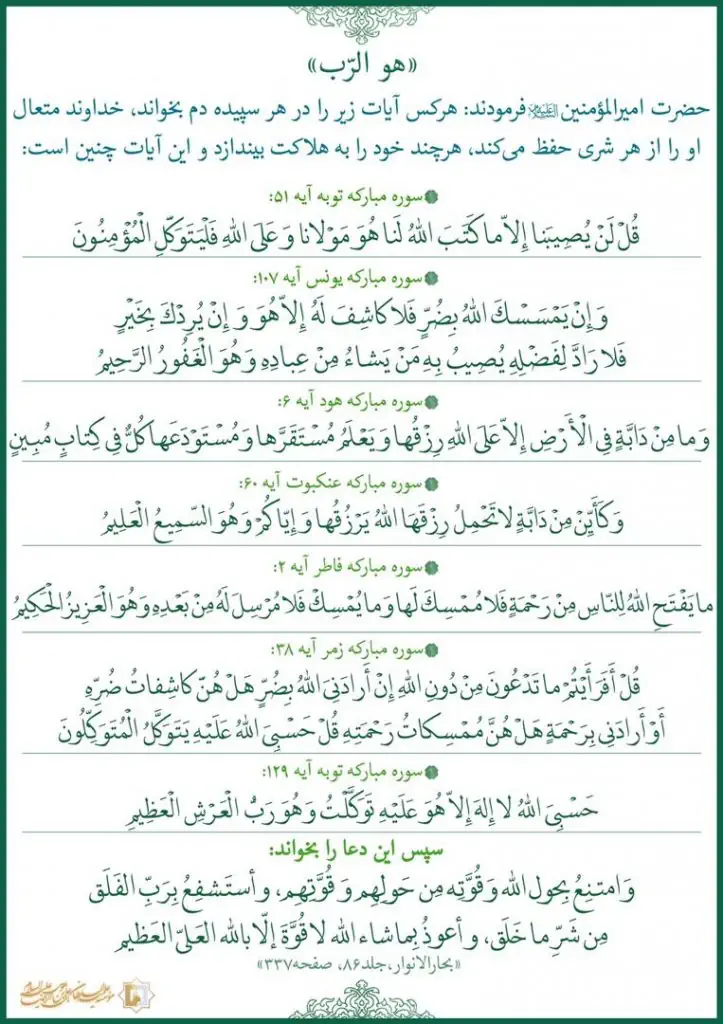 «هو الرّب»
حضرت امیرالمؤمنین علیه‌السلام فرمودند: هرکس آیات زیر را در هر سپیده دم بخواند، خداوند متعال
او را از هر شری حفظ می‌کند، هرچند خود را به هلاکت بیندازد و این آیات چنین است:
سوره مبارکه توبه آیه ۵۱:
قُلْ لَنْ يُصِيبَنا إِلاّ ما كَتَبَ اللهُ لَنا هُوَ مَوْلانا وَ عَلَى اللهِ فَلْيَتَوَكَّلِ الْمُؤْمِنُونَ
سوره مبارکه یونس آیه ۱۰۷:
وَ إِنْ يَمْسَسْكَ اللهُ بِضُرٍّ فَلا كاشِفَ لَهُ إِلاّ هُوَ وَ إِنْ يُرِدْكَ بِخَيْرٍ
فَلا رَادَّ لِفَضْلِهِ يُصِيبُ بِهِ مَنْ يَشاءُ مِنْ عِبادِهِ وَ هُوَ الْغَفُورُ الرَّحِيمُ
سوره مبارکه هود آیه ۶:
وَ ما مِنْ دَابَّةٍ فِي الْأَرْضِ إِلاّ عَلَى اللهِ رِزْقُها وَ يَعْلَمُ مُسْتَقَرَّها وَ مُسْتَوْدَعَها كُلٌّ فِي كِتابٍ مُبِينٍ
سوره مبارکه عنکبوت آیه ۶۰:
وَ كَأَيِّنْ مِنْ دَابَّةٍ لا تَحْمِلُ رِزْقَهَا اللهُ يَرْزُقُها وَ إِيّاكُمْ وَ هُوَ السَّمِيعُ الْعَلِيمُ
سوره مبارکه فاطر آیه ۲:
ما يَفْتَحِ اللهُ لِلنّاسِ مِنْ رَحْمَةٍ فَلا مُمْسِكَ لَها وَ ما يُمْسِكْ فَلا مُرْسِلَ لَهُ مِنْ بَعْدِهِ وَ هُوَ الْعَزِيزُ الْحَكِيمُ
سوره مبارکه زمر آیه ۳۸:
قُلْ أَفَرَأَيْتُمْ ما تَدْعُونَ مِنْ دُونِ اللهِ إِنْ أَرادَنِيَ اللهُ بِضُرٍّ هَلْ هُنَّ كاشِفاتُ ضُرِّهِ
أَوْ أَرادَنِي بِرَحْمَةٍ هَلْ هُنَّ مُمْسِكاتُ رَحْمَتِهِ قُلْ حَسْبِيَ اللهُ عَلَيْهِ يَتَوَكَّلُ الْمُتَوَكِّلُونَ
سوره مبارکه توبه آیه ۱۲۹:
حَسْبِيَ اللهُ لا إِلهَ إِلاّ هُوَ عَلَيْهِ تَوَكَّلْتُ وَ هُوَ رَبُّ الْعَرْشِ الْعَظِيمِ
سپس این دعا را بخواند:
وَ امتنِعُ بِحولِ الله وَ قُوَّتِه مِن حَولِهِم وَ قُوَّتِهِم، و أستَشفِعُ بِرَبِّ الفَلَق
مِن شَرِّ ما خَلَق، و أعوذُ بِما شاء الله لا قُوَّةَ إلّا بالله العَلیِّ العَظیم
«بحارالانوار،جلد۸۶، صفحه۳۳۷»